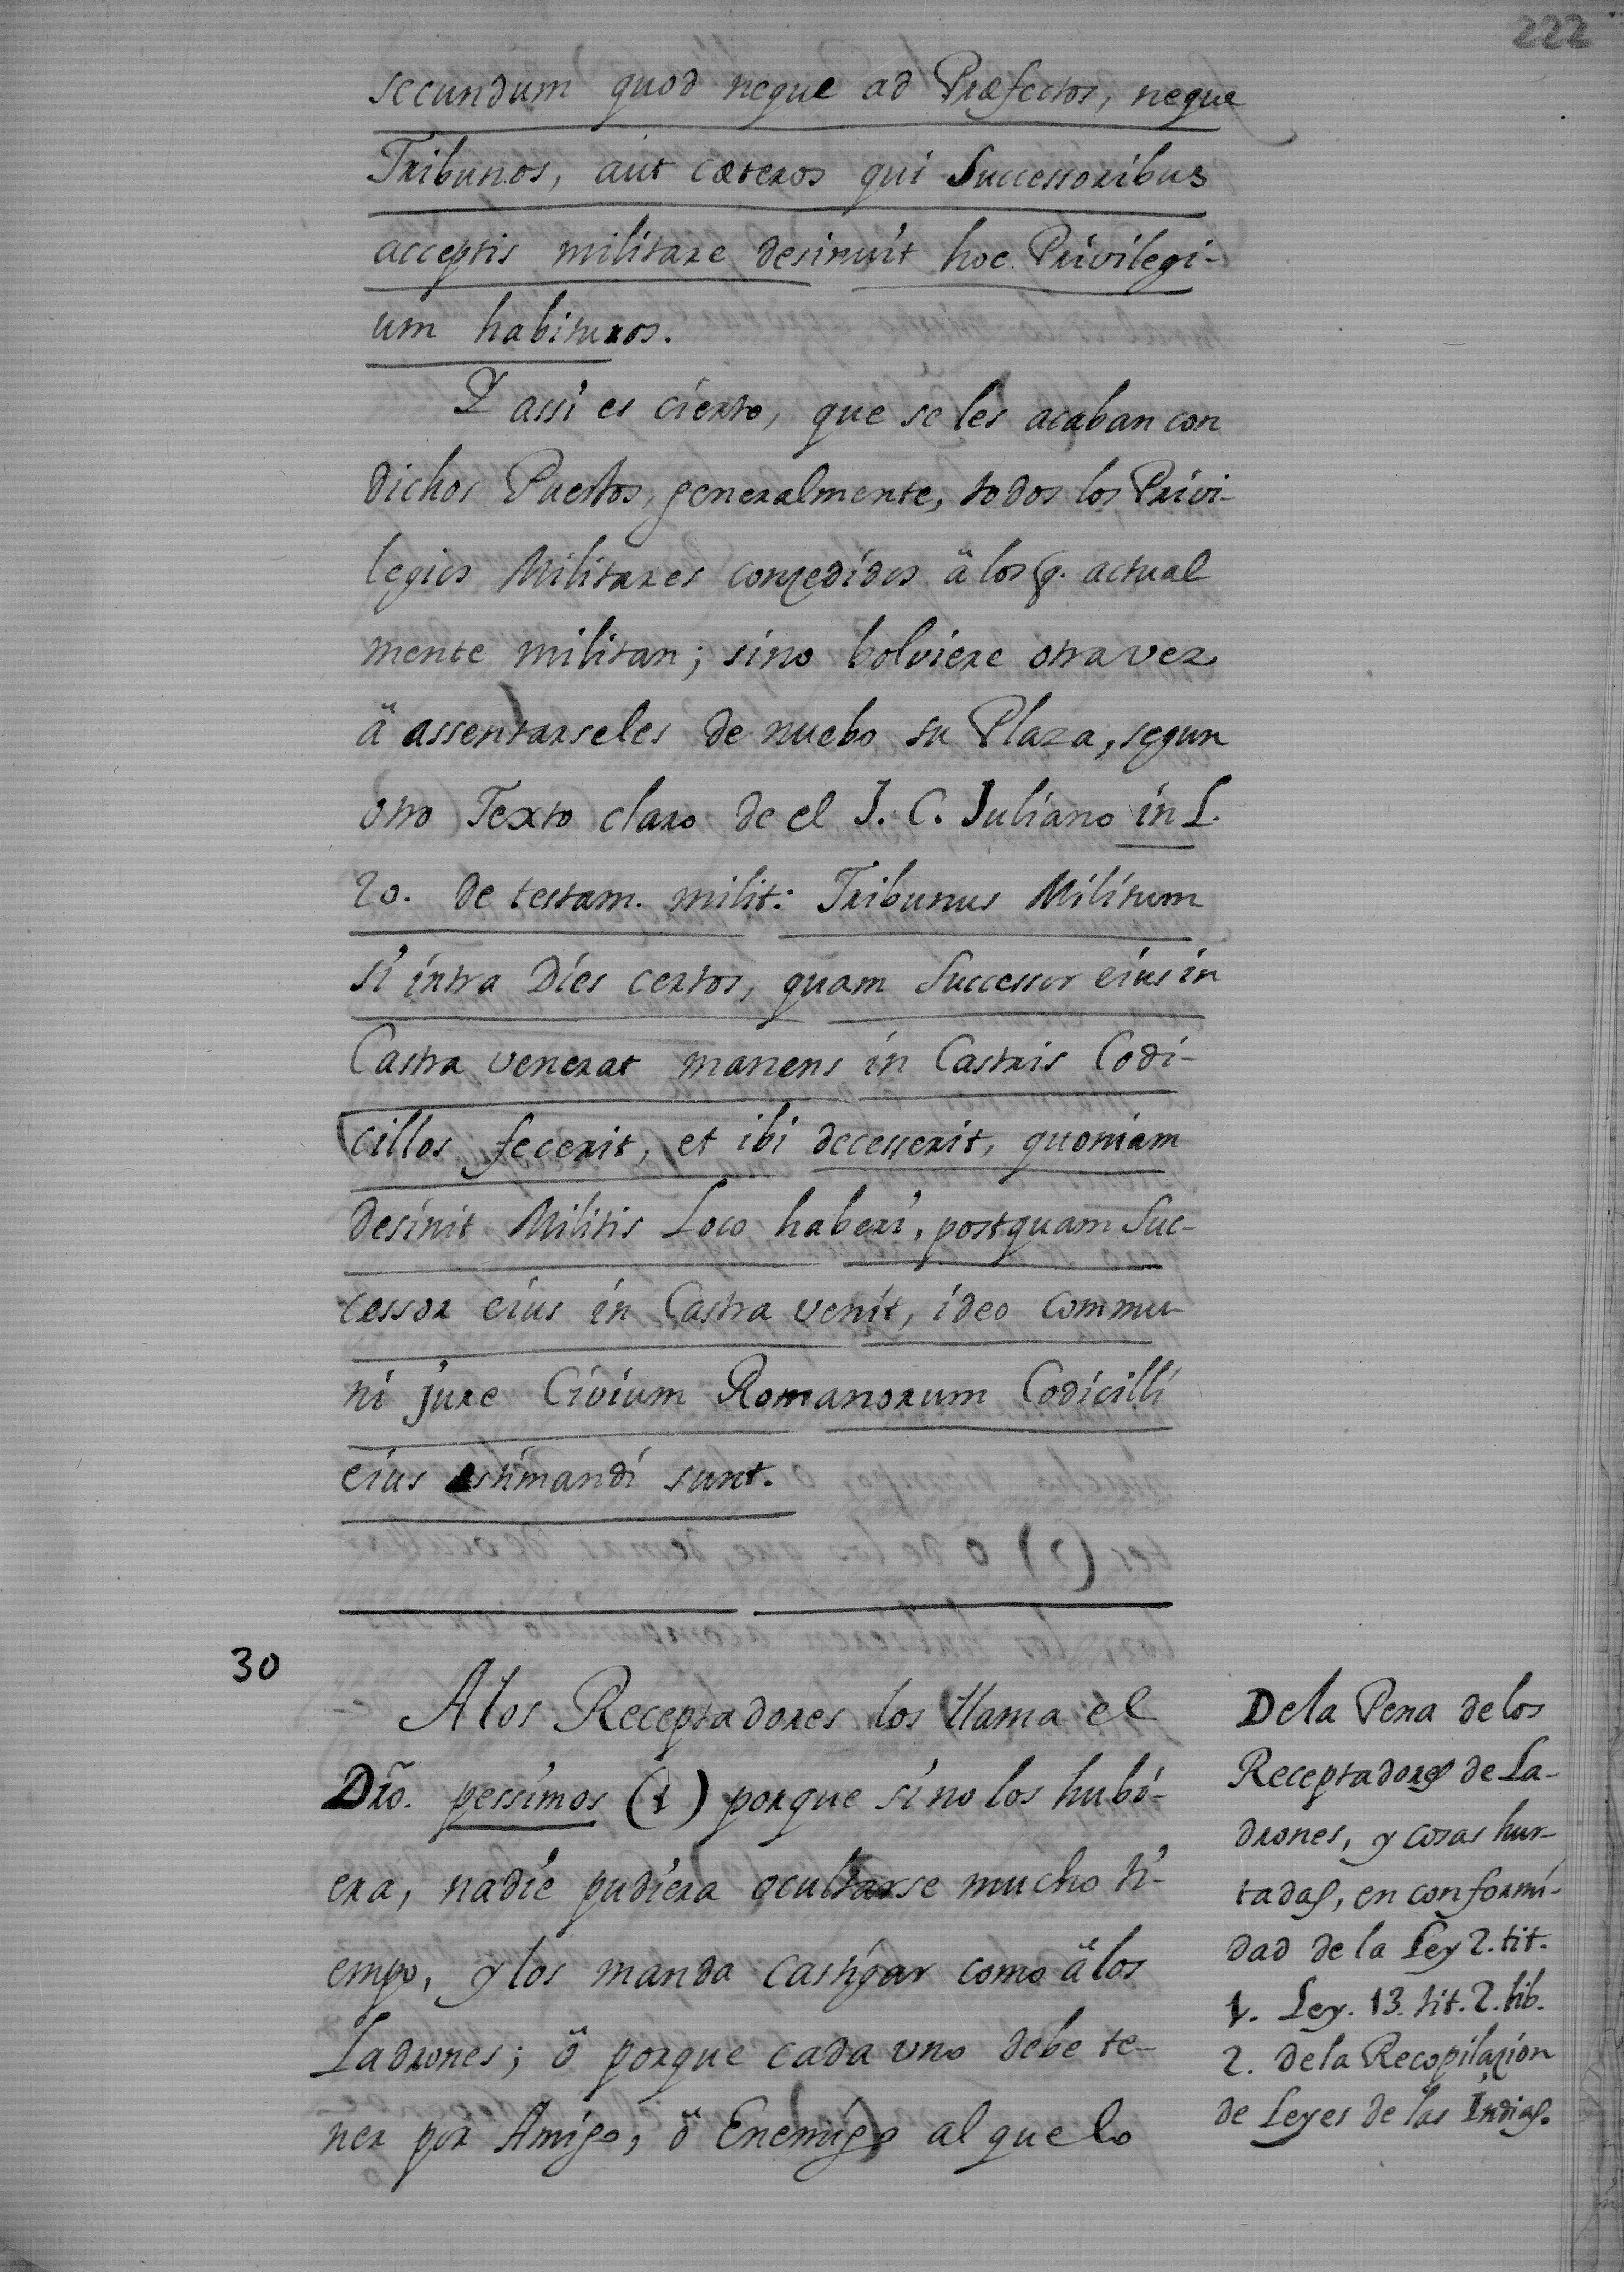 222
secundum quod neque ad Præfectos, neque
Tribunos, aut cæteros qui Successoribus
acceptis militare desinuit hoc Privilegi-
um habituros.
Y assi es cierto, que se les acaban con
dichos Puestos, generalmente, todos los Privi-
legios Militares conzedidos ä los q. actual
mente militan; sino bolviere otra vez
ä assentarseles de nuebo su Plaza, segun
otro Texto claro de el J. C. Juliano in L.
20. de testam. milit: Tribunus Militum
si intra Dies certos, quam Successor eius in
Castra venerat manens in Castris Codi-
cillos fecerit, et ibi decesserit, quoniam
desinit Militis Loco haberi, postquam Suc-
cessor eius in Castra venit, ideo commu-
ni jure Civium Romanorum Codicilli
eius æstimandi sunt.
30
A los Receptadores los llama el
Dro. pessimos (1) porque si no los hubi-
era, nadie pudiera ocultarse mucho ti-
empo, y los manda castigar como ä los
Ladrones; ö porque cada uno debe te-
ner por Amigo, ö Enemigo al que lo
De la Pena de los
Receptadores de La-
drones, y cosas hur-
tadas, en conformi-
dad de la Ley 2. tit.
1. Ley. 13. tit. 2. lib.
2. de la Recopilazion
de Leyes de las Indias.